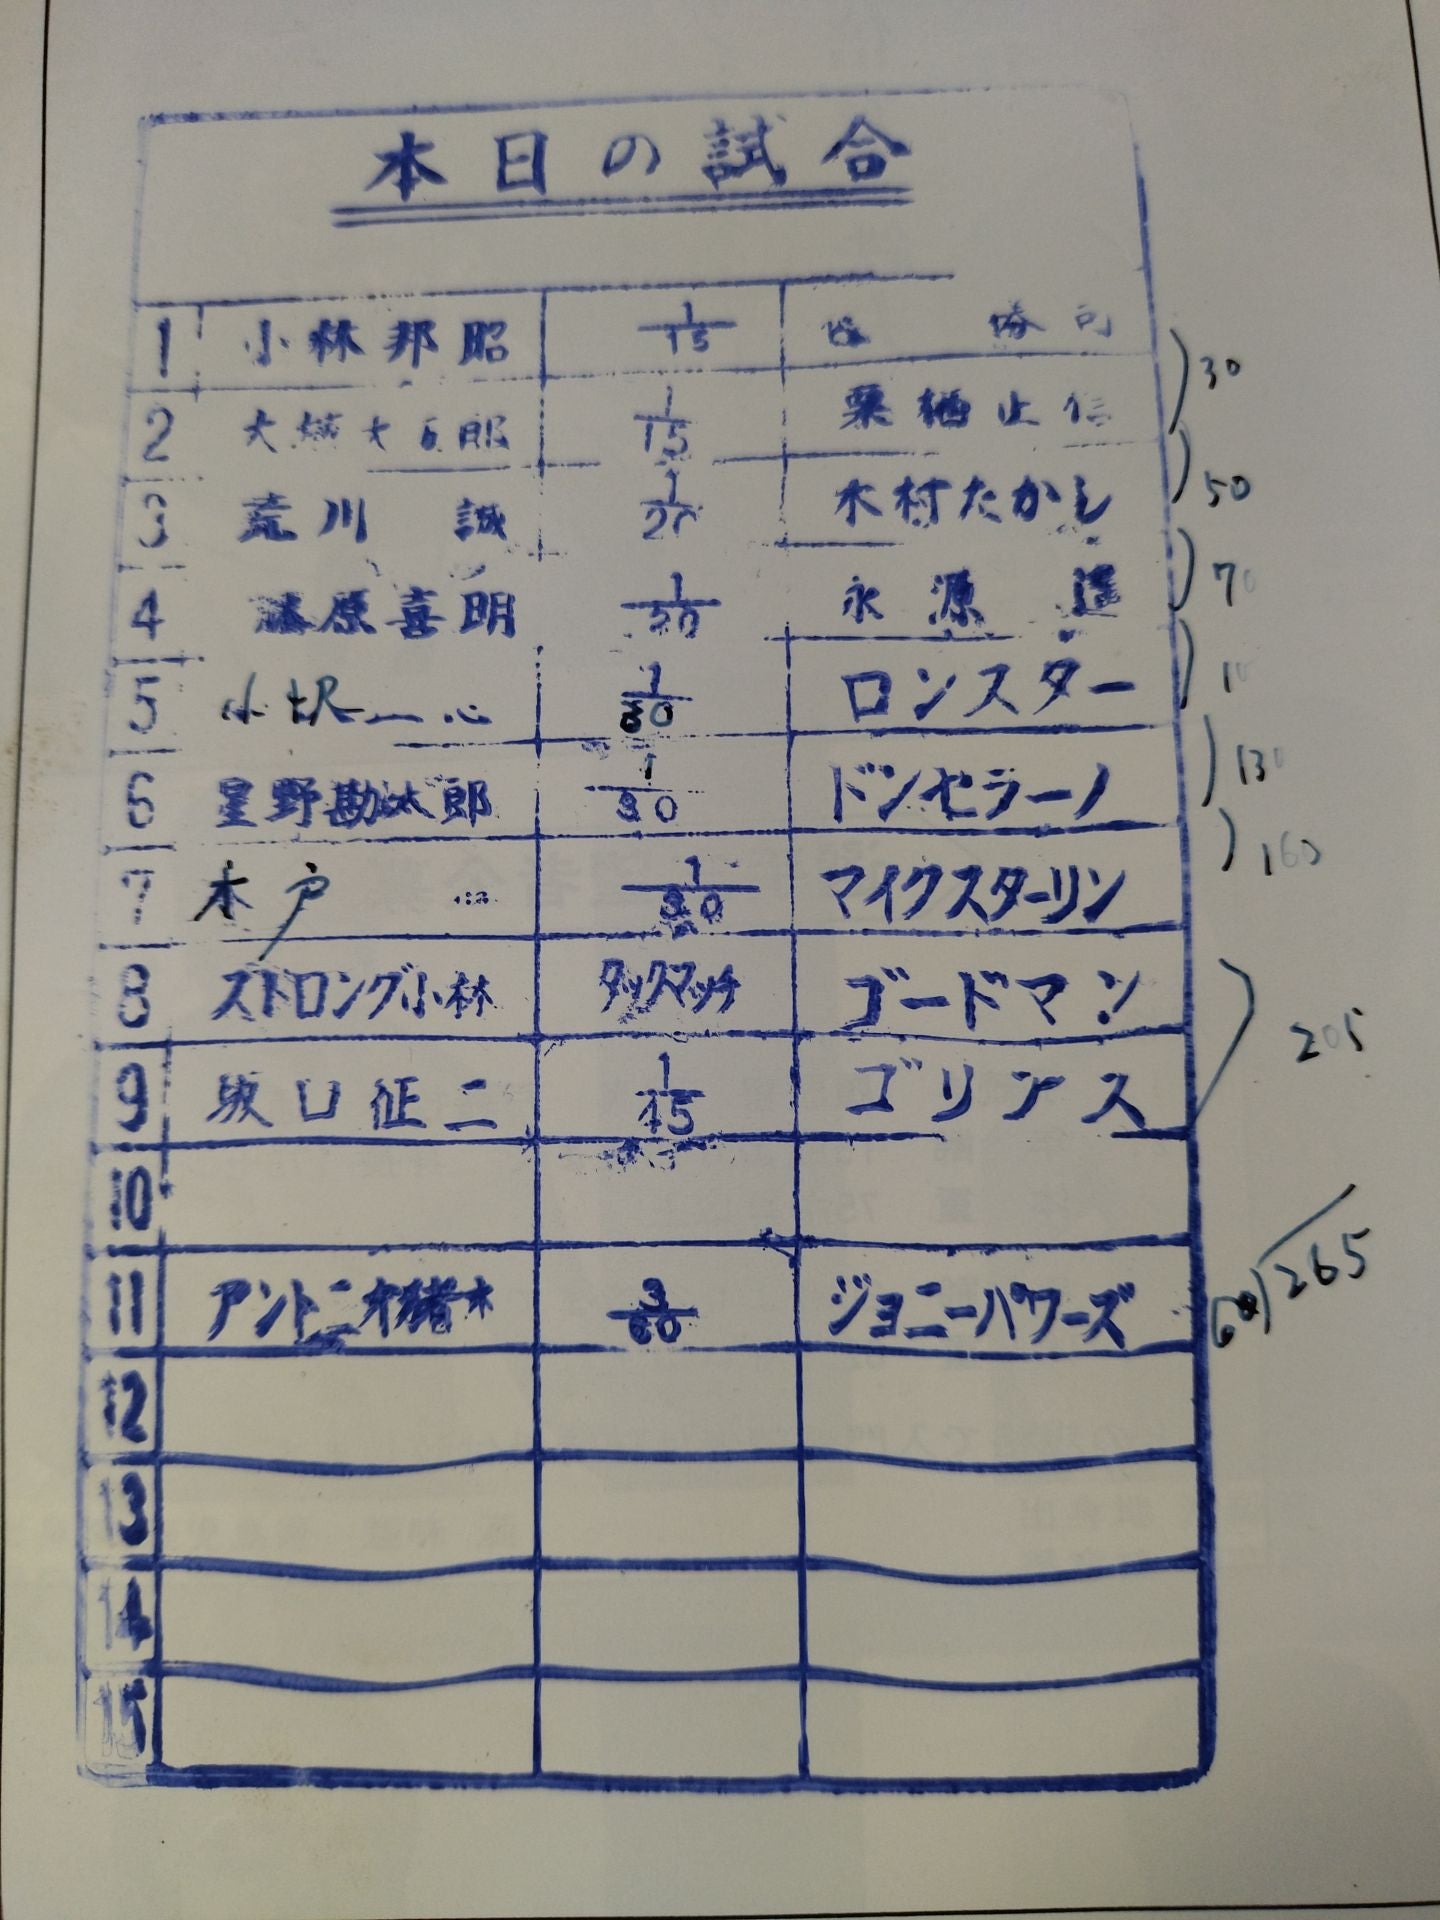 本日の試合
1 小林邦昭 1/15 勝司
2 大城大五郎 1/15 栗栖正信
3 荒川 誠 1/20 木村たかし
4 藤原喜明 1/20 永源 遥
5 小沢一心 1/30 ロンスター
6 星野勘太郎 1/30 ドンセラーノ
7 木戸 1/30 マイクスターリン
8 ストロング小林 タッグマッチ ゴードマン
9 坂口征二 1/45 ゴリアス
10
11 アントニオ猪木 3/60 ジョニーパワーズ
12
13
14
15
30
50
70
130
160
205
265